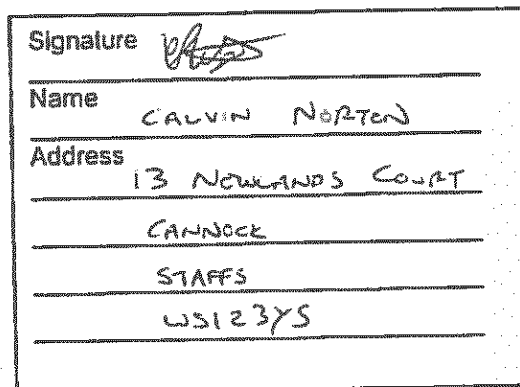 Signature
Name
CALVIN NORTON
Address
13 NEWLANDS COURT
CANNOCK
STAFFS
WS123YS